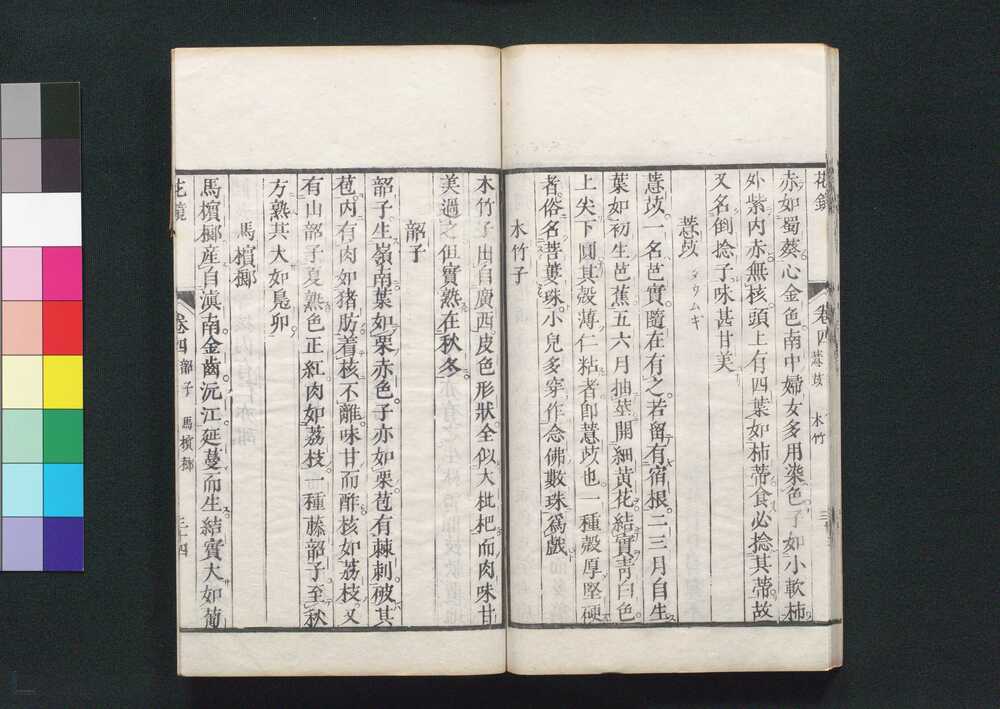 花鏡 卷四 薏苡 木竹
赤如蜀葵心金色南中婦女多用染色子如小軟柿
外紫内赤無核頭上有四葉如柿蒂食必捻其蒂故
又名倒捻子味甚甘美
薏苡
薏苡一名芑實隨在有之若留有宿根二三月自生
葉如初生芭蕉五六月抽莖開細黄花結實靑白色
上尖下圓其殼薄仁粘者卽薏苡也一種殼厚堅硬
者俗名菩薐珠小兒多穿作念佛數珠爲戲
木竹子
木竹子出自廣西皮色形狀全似大枇杷而肉味甘
美過之但實熟在秋冬
韶子
韶子生嶺南葉如栗赤色子亦如栗苞有棘刺破其
苞内有肉如猪肪着核不離味甘而酢核如荔枝又
有山韶子夏熟色正紅肉如荔枝一種藤韶子至秋
方熟其大如鳧卵
馬檳榔
馬檳榔産自滇南金齒沅江延蔓而生結實大如葡
花鏡 卷四 韶子 馬檳榔 三十四